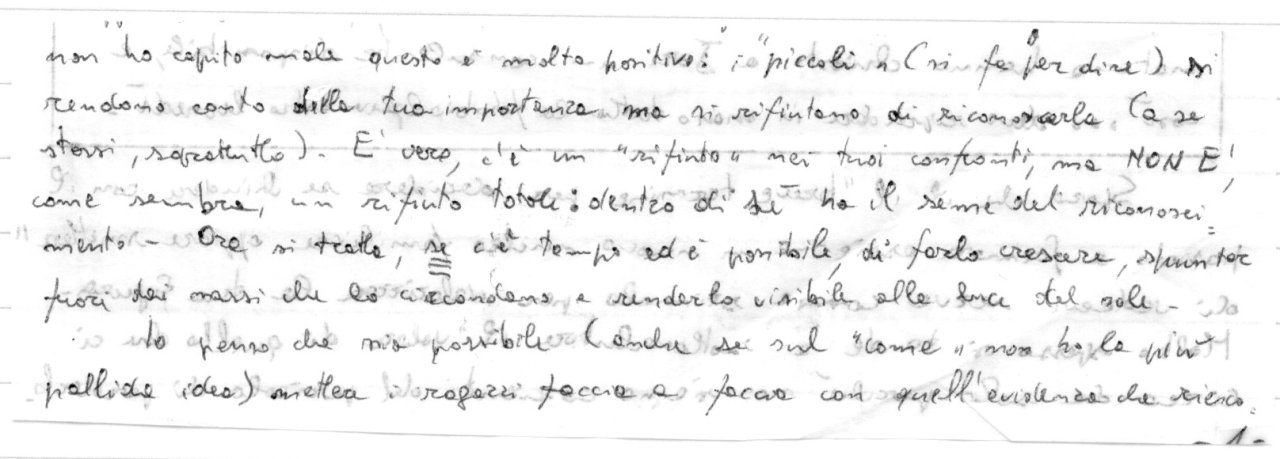 non ho capito male questo è molto positivo: i "piccoli" (si fa per dire) si
rendono conto della tua importanza ma si rifiutano di riconoscerla (a se
stessi, soprattutto). E' vero, c'è un "rifiuto" nei tuoi confronti, ma NON E',
come sembra, un rifiuto totale: dentro di sé ha il seme del riconosci=
mento - Ora si tratta, se c'è tempo ed è possibile, di farlo crescere, spuntar
fuori dai massi che lo circondano e renderlo visibile alla luce del sole -
Io penso che sia possibile (anche se sul "come" non ho la più
pallida idea) metter i ragazzi faccia a faccia con quell'evidenza che riesco=
-1-